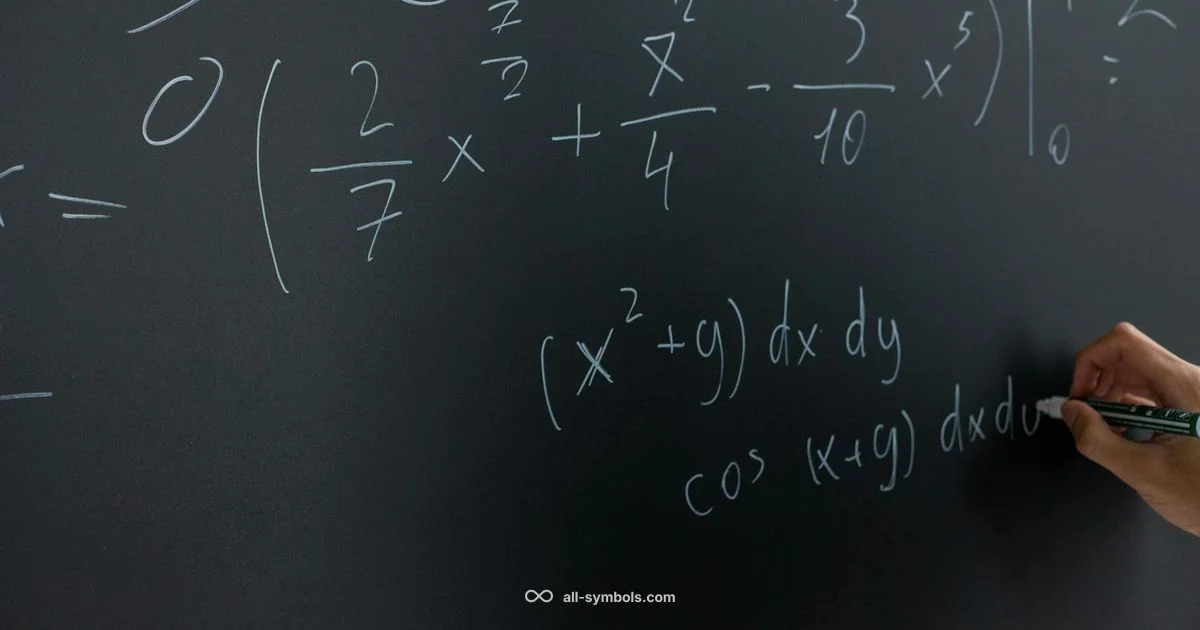 = 0 ( 2/7 x^(7/2) + x^2/4 - 3/10 x^5 ) |_0 =
(x^2 + y) dx dy
cos (x+y) dx dy
all-symbols.com